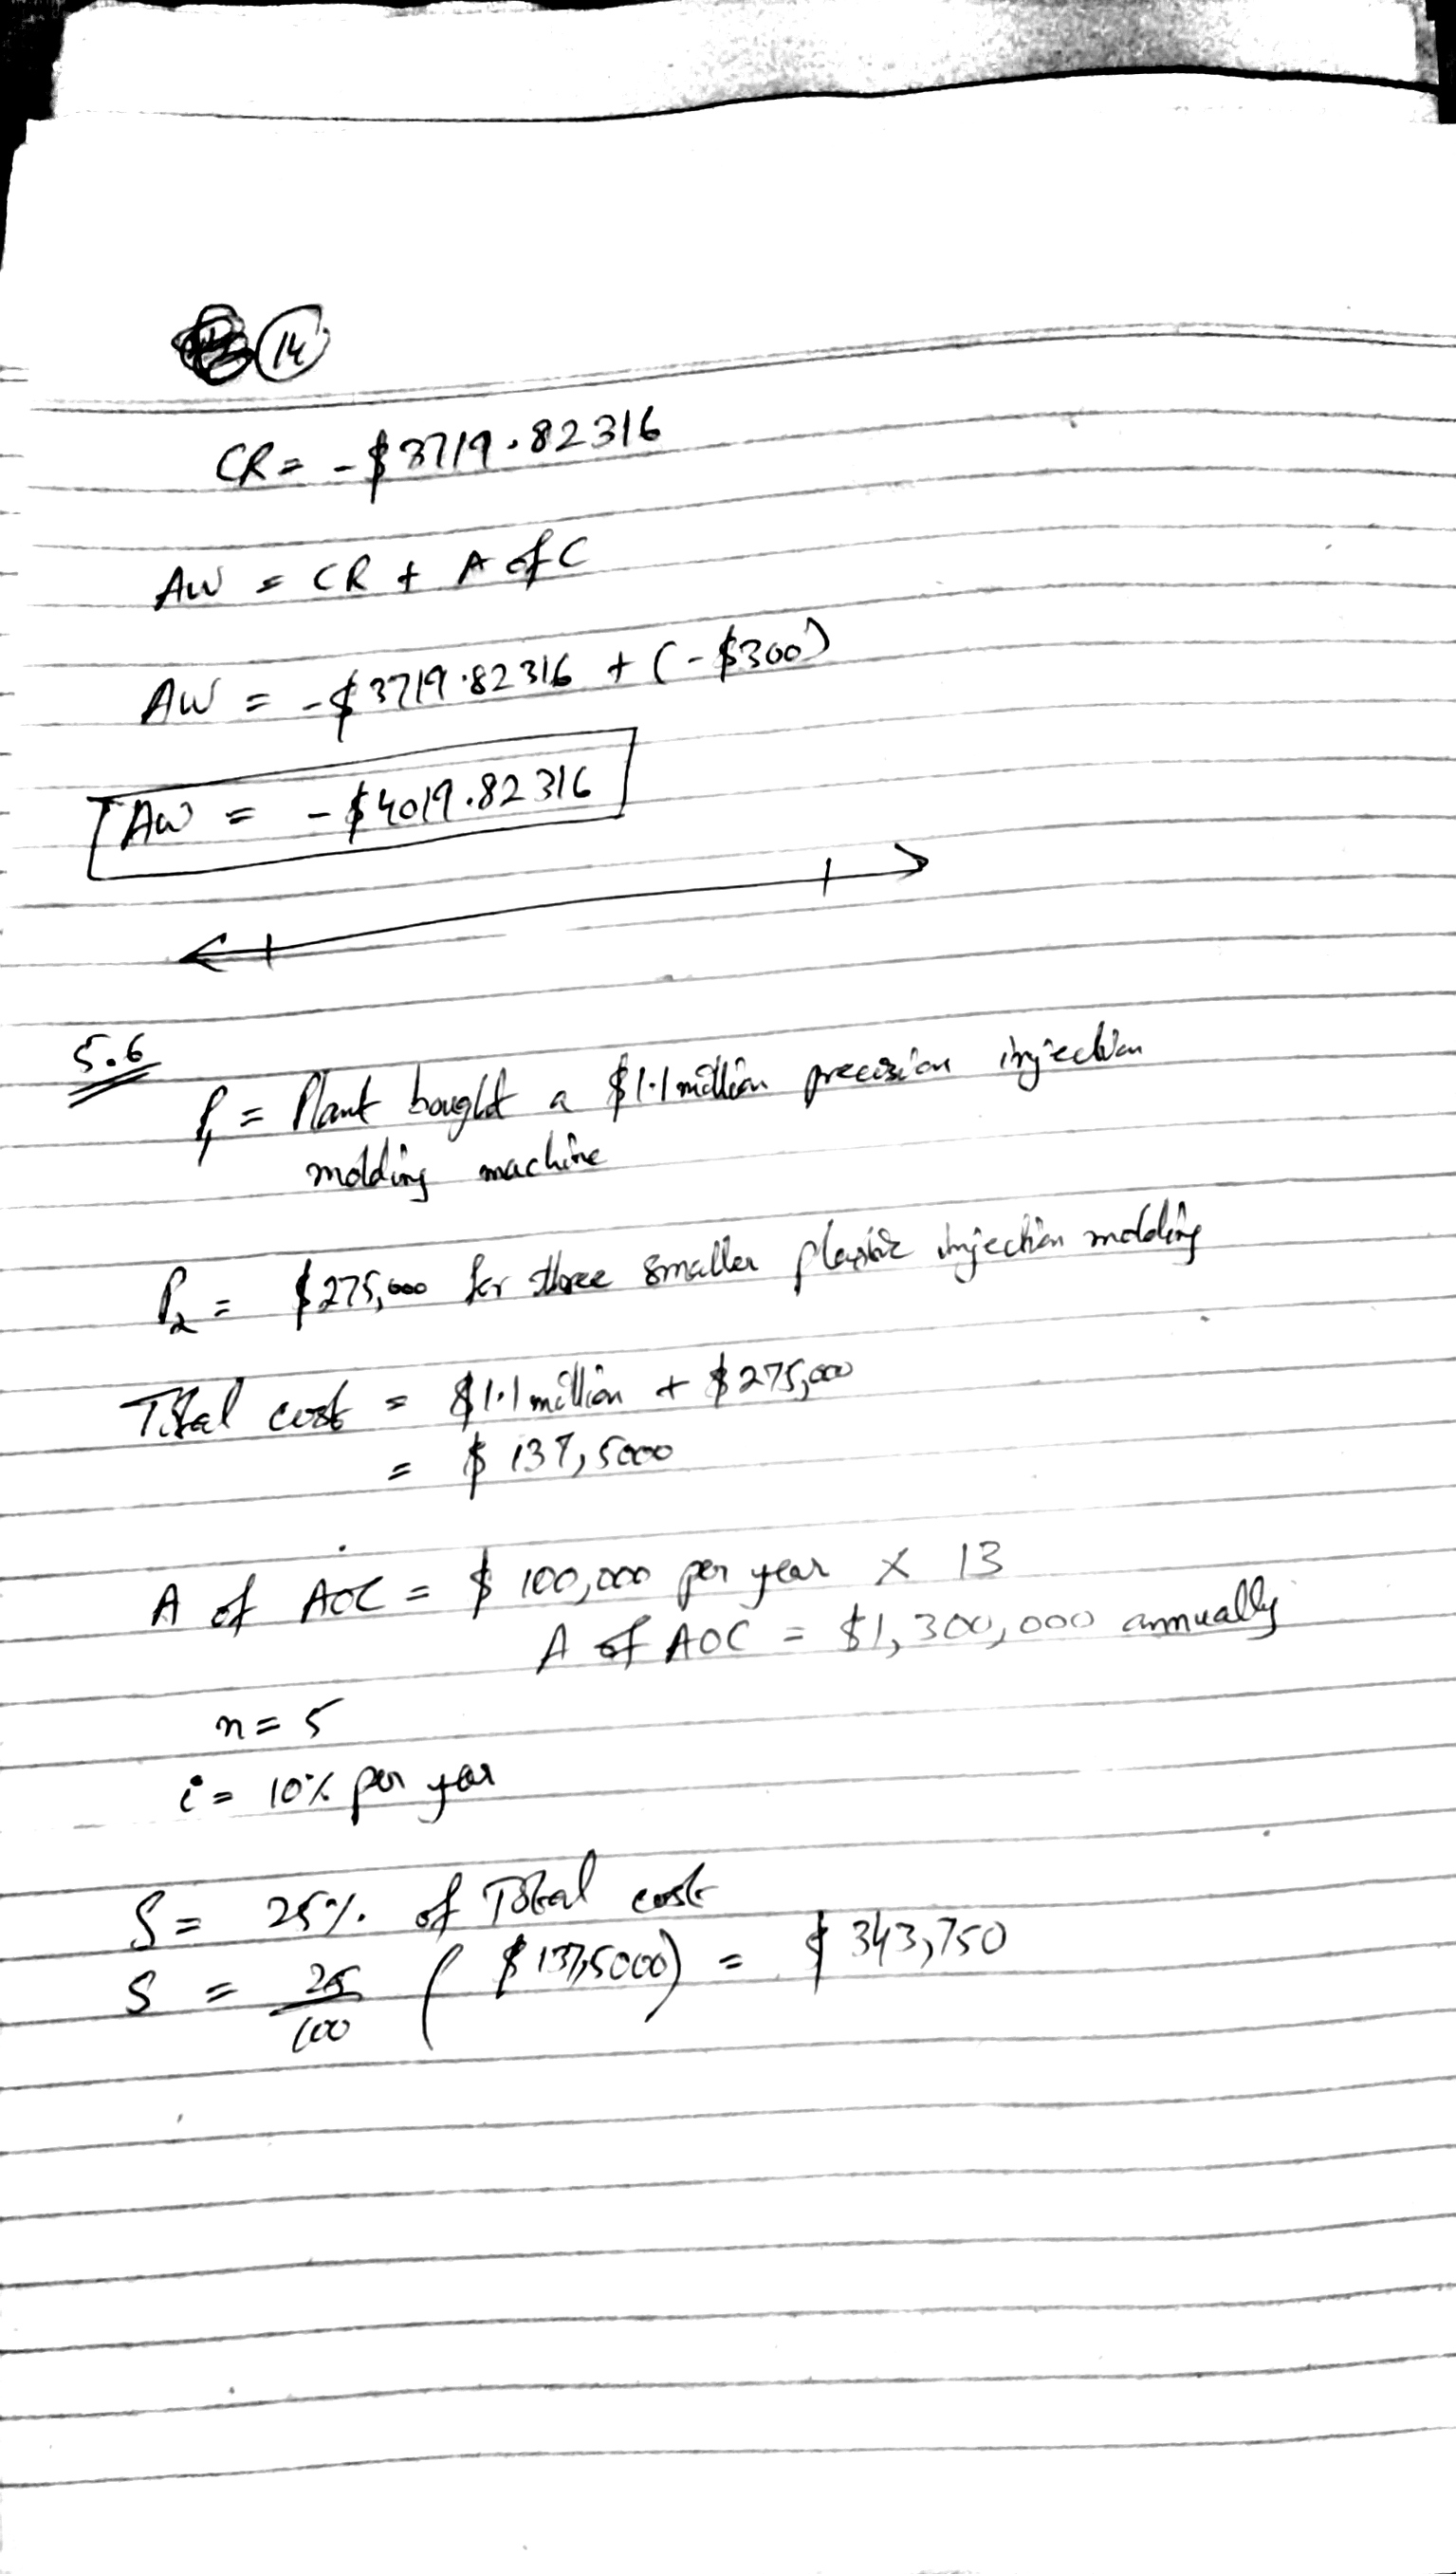 14
CR = -$3719.82316
AW = CR + A of C
AW = -$3719.82316 + (-$300)
AW = -$4019.82316
5.6
P₁ = Plant bought a $1.1 million precision injection
molding machine
P₂ = $275,000 for three smaller plastic injection molding
Total cost = $1.1 million + $275,000
= $137,5000
A of AOC = $100,000 per year × 13
A of AOC = $1,300,000 annually
n = 5
i = 10% per year
S = 25% of Total cost
S = 25/100 ($137,5000) = $343,750